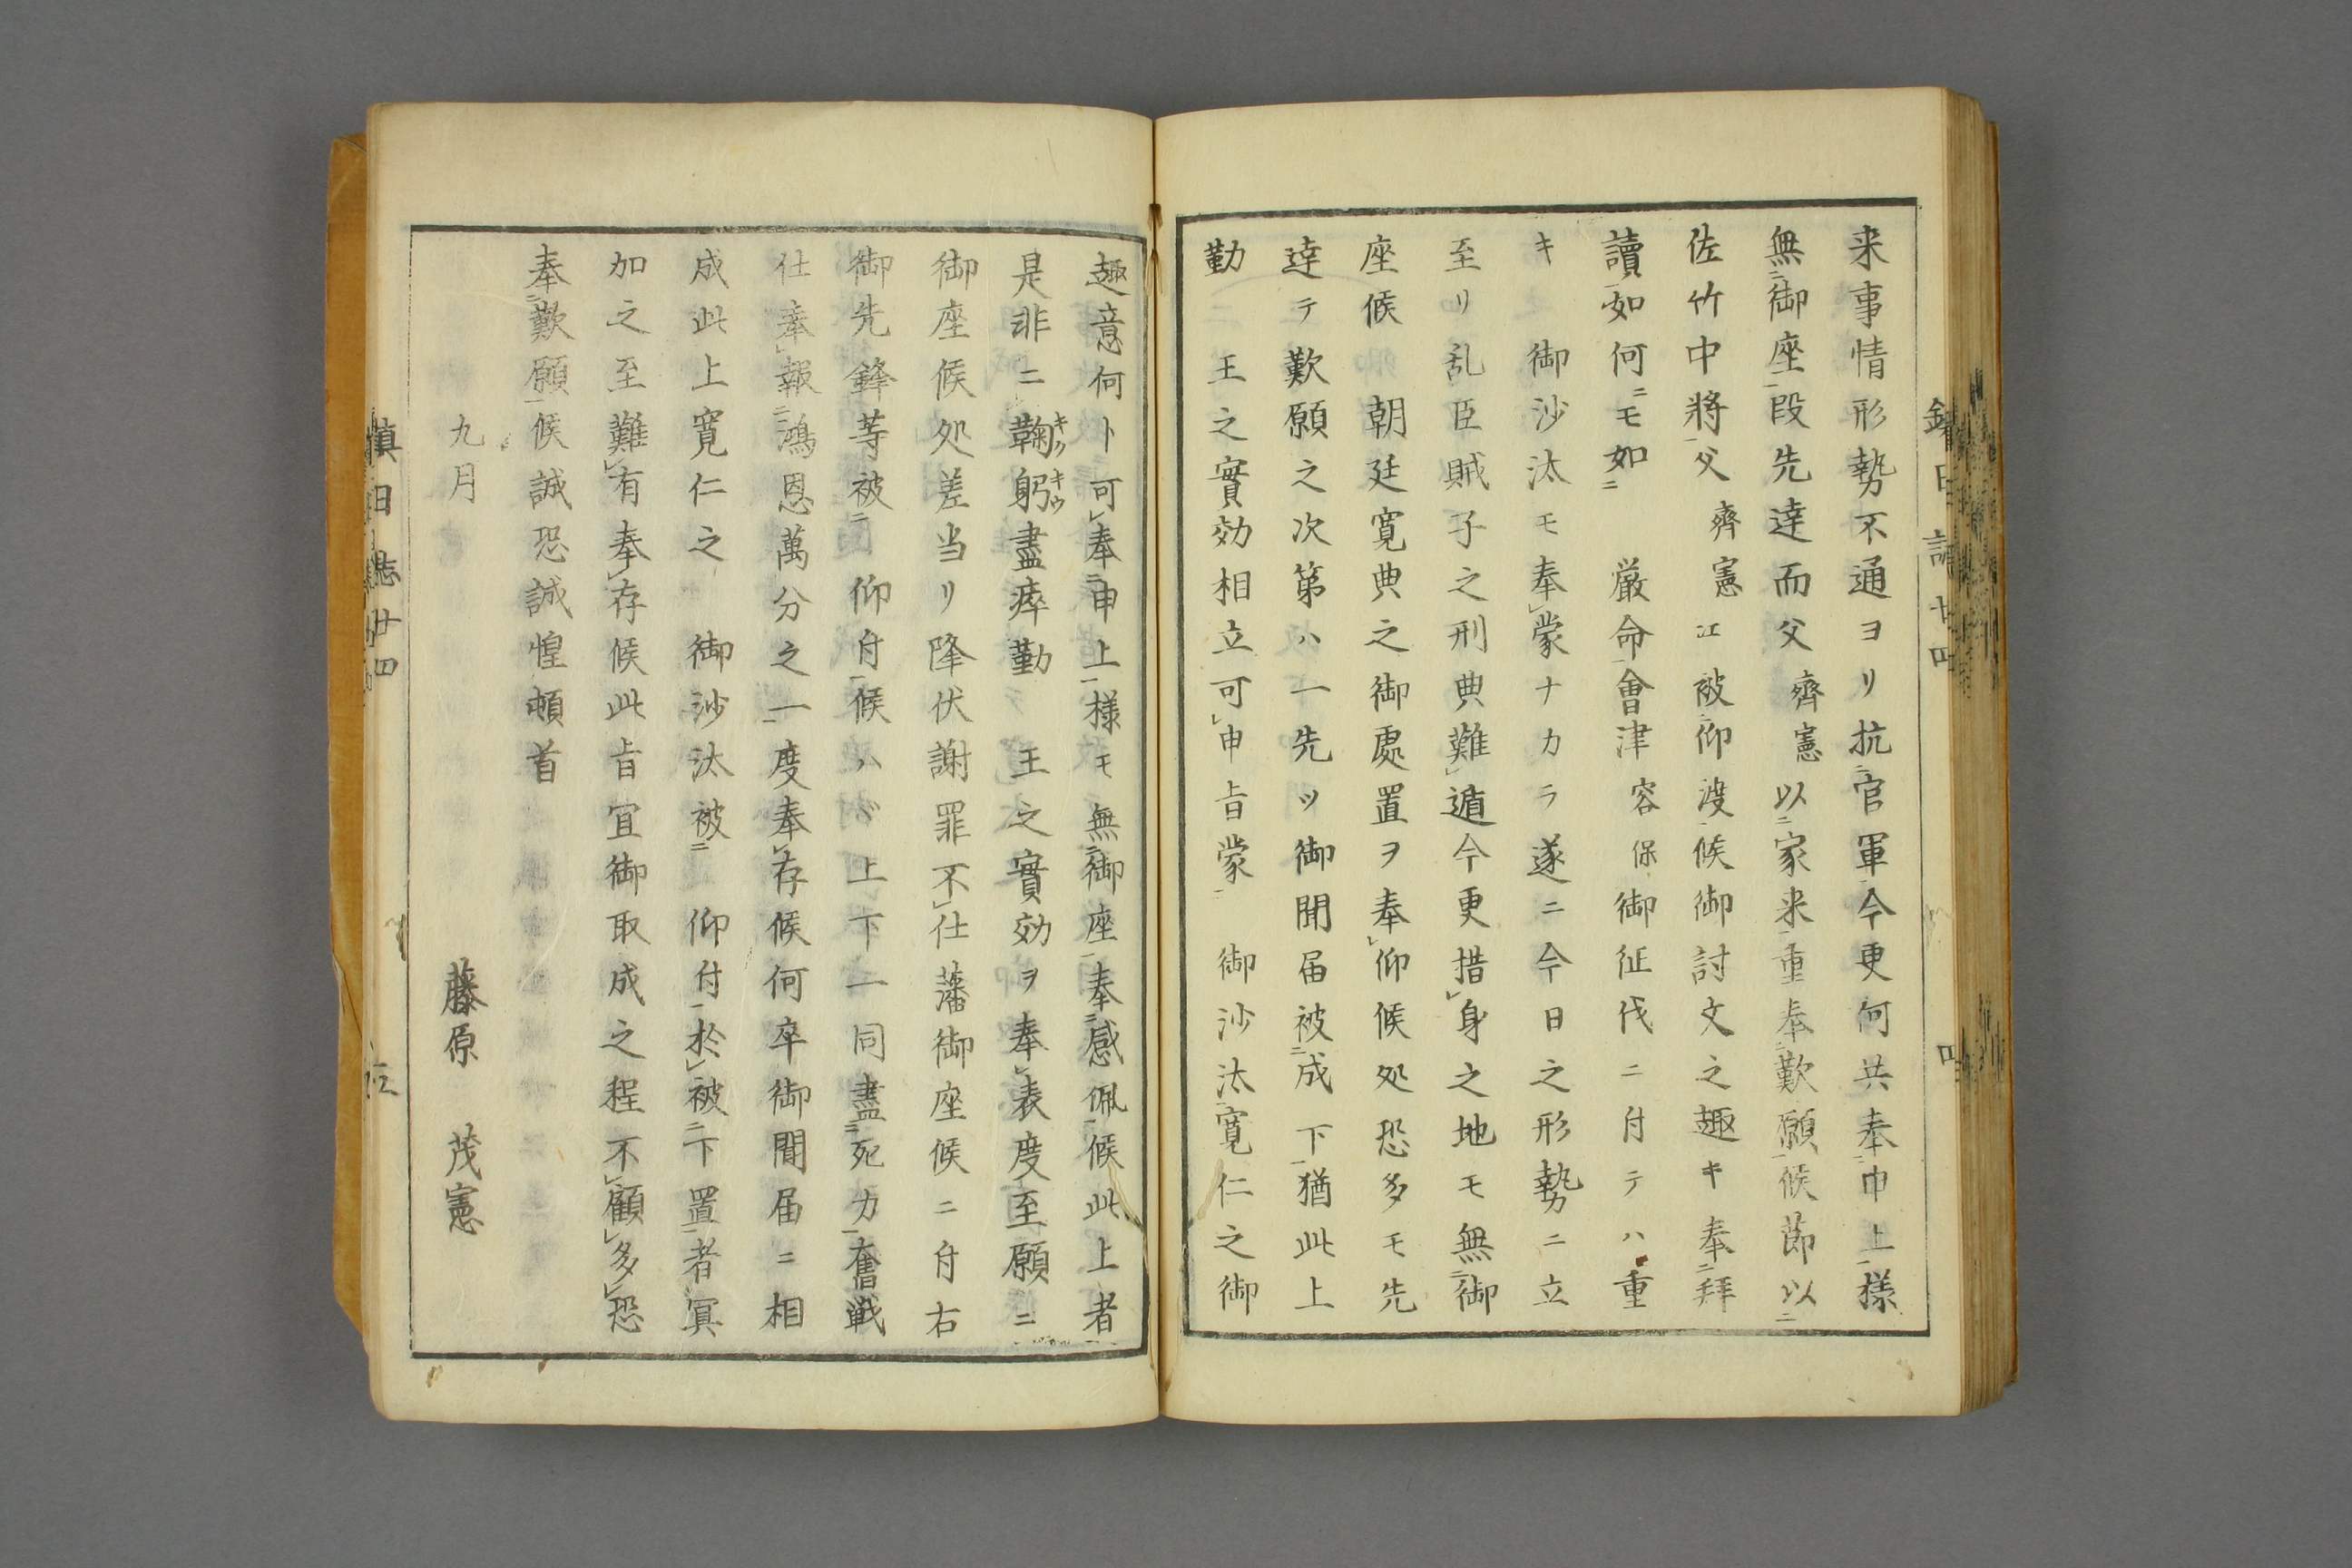 来事情形勢不通ヨリ抗二官軍一今更何共奉二申上一様
無二御座一段先達而父齊憲以二家来一重奉二歎願一候節以二
佐竹中將一父齊憲江被二仰渡一候御討文之趣キ奉二拜
讀一如何ニモ如二厳命一會津容保御征伐ニ付テハ重
キ御沙汰モ奉レ蒙ナカラ遂ニ今日之形勢ニ立
至リ乱臣賊子之刑典難レ遁今更措レ身之地モ無二御
座候朝廷寛典之御處置ヲ奉レ仰候処恐多モ先
達テ歎願之次第ハ一先ツ御聞届被二成下一猶此上
勤王之實効相立可レ申旨蒙二御沙汰一寛仁之御
趣意何ト可レ奉二申上一様モ無二御座一奉二感佩一候此上者
是非ニ鞠躬盡瘁勤王之實効ヲ奉レ表度至願ニ
キクキウ
御座候処差当リ降伏謝罪不レ仕藩御座候ニ付右
御先鋒等被二仰付一候ハヾ上下一同盡二死力一奮戦
仕奉レ報二鴻恩萬分之一一度奉レ存候何卒御聞届ニ相
成此上寛仁之御沙汰被二仰付一於レ被二下置一者冥
加之至難レ有奉レ存候此旨宜御取成之程不レ顧レ多レ恐
奉二歎願一候誠恐誠惶頓首
九月
藤原茂憲
鎮日誌廿四
四
鎮日誌廿四
五